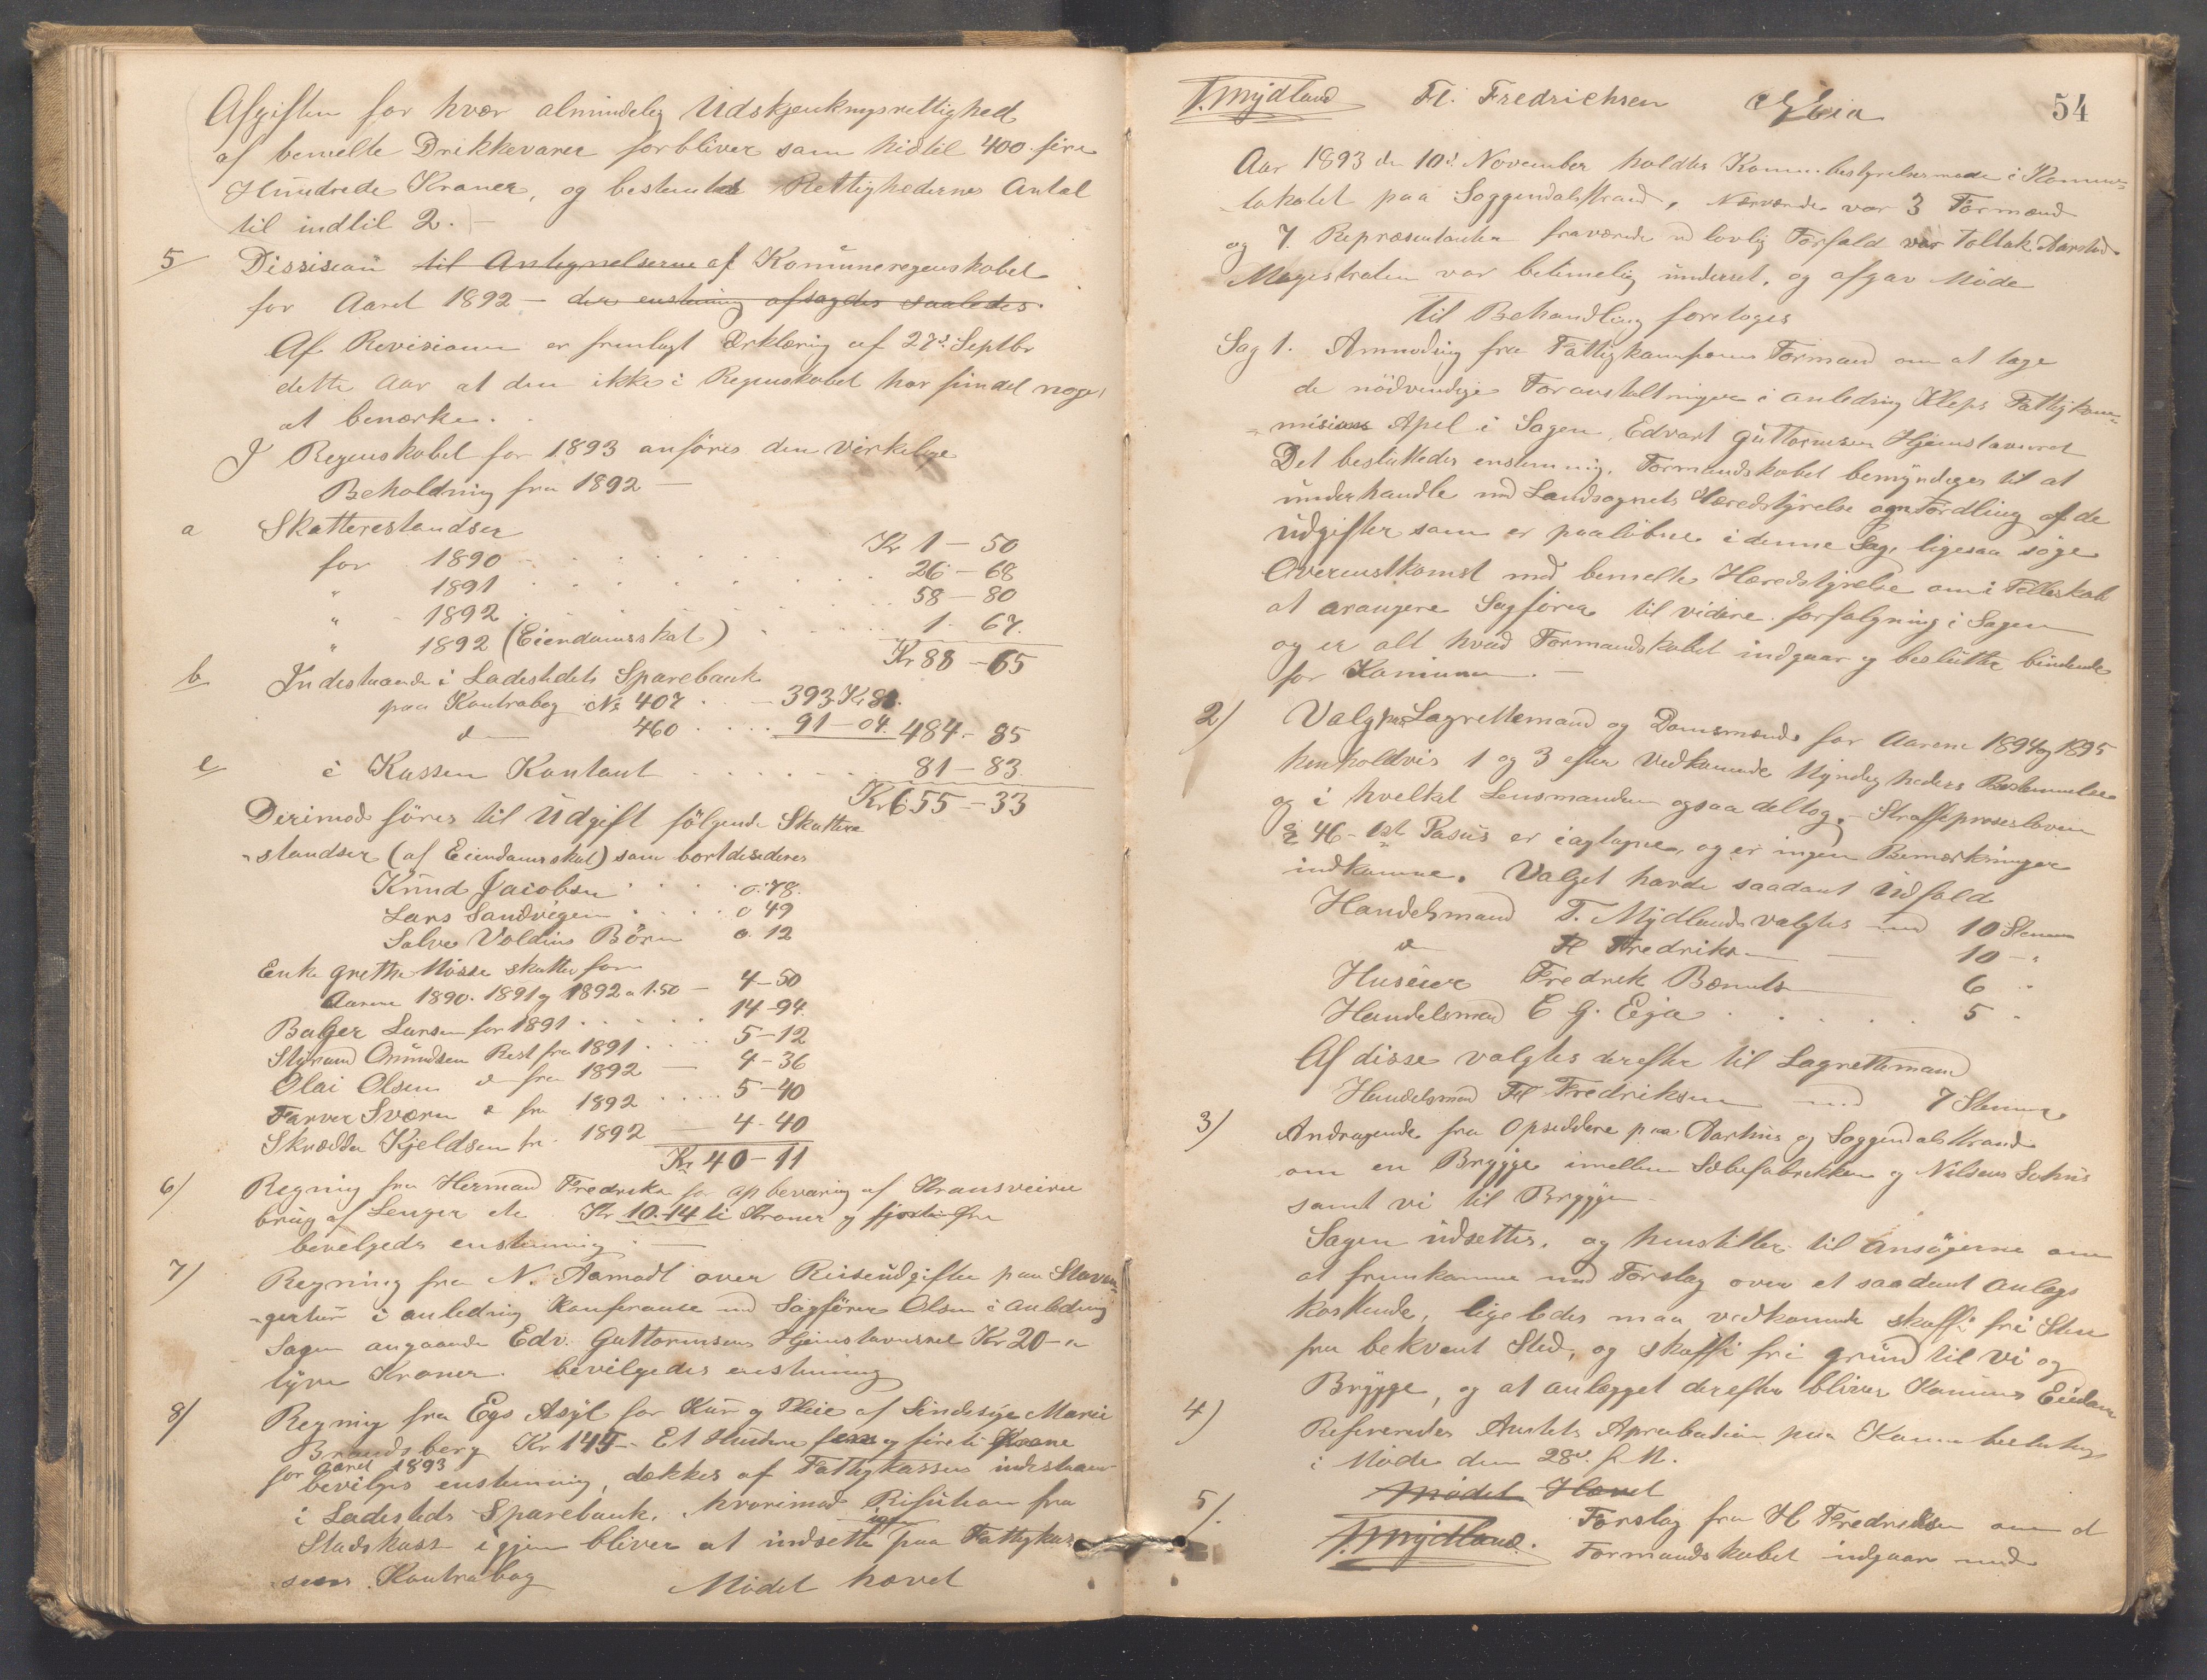 Afgiften for hvær almindelig Udskjenkningsrettighed
af bemelte Drikkevarer forbliver som hidtil 400 fire
Hundrede Kroner, og bestemtes Rettighedernes Antal
til indtil 2. -
5 Dissision til Antegnelserne af Komuneregnskabet
for Aaret 1892 - der enstemig afsagdes saaledes.
Af Revisionen er fremlagt Erklæring af 27de Septbr
dette Aar at den ikke i Regnskabet har fundet noget
at bemærke.
I Regnskabet for 1893 anføres den virkelige
Beholdning fra 1892 -
a Skatterestandser
for 1890 Kr 1 - 50
" 1891 26 - 68
" 1892 58 - 80
" 1892 (Eiendomsskat) 1 - 67.
Kr 88 - 65
b Indestaaende i Ladestedets Sparebank
paa Kontrabog No 407 - 393 Kr 81.
d 460 91 - 04. 484 - 85
c i Kassen Kontant 81 - 83
Kr 655 - 33
Derimod føres til Udgift følgende Skattere
-standser (af Eiendomsskat) som bortdesideres
Knud Jacobsen 0.78.
Lars Sandvigen 0 49
Salve Voldens Børn 0. 12
Enke Grethe Mosse skatter for
Aarene 1890. 1891 og 1892 a 1.50 - 4 - 50
Balger Larsen for 1891 14 - 94
Styrmand Omundsen Rest fra 1891 5 - 12
Olai Olsen d fra 1892 - 4 - 36
Farver Sværn d fra 1892 5 - 40
Skrædder Kjeldsen fr. 1892 - 4 - 40
Kr 40 - 11
6) Regning fra Hermand Fredriksen for opbevaring af
brug af Senger etc Kr 10.14 ti Kroner og fjorten Øre
bevilgedes enstemig. -
7) Regning fra N. Aamodt over Reiseudgifter paa Stavan
-gertur i anledning Konferanse med Sagfører Olsen i Anledning
Sagen angaaende Edv. Guttormsens Hjemstavnsret Kr 20 -
tyve Kroner. bevilgedes enstemig
8) Regning fra Egs Asyl for Kur og Pleie af Sindssyge Marie
Brandsberg Kr 145 - Et Hundre fem og fireti Krone
for Aaret 1893
bevilges enstemig, dækkes af Fattigkassens indestaaen
i Ladesteds Sparebank, hvorimod Refusion fra
Stadskass igjen bliver at indsette paa Fattigkas
sens Kontrabog Mødet hævet
T. Mydland Fl. Fredrichsen C G Eia 54
Aar 1893 den 10de November holdtes Komunbestyrelsesmøde i Komun-
-lokalet paa Soggendalstrand, Nærværende var 3 Formænd
og 7. Repræsentanter fraværende ved lovlig Forfald var Tollak Aarstad
Magistraten var betimelig underret, og afgav Møde
Til Behandling foretoges
Sag 1. Anmodning fra Fattigkomisions Formand om at tage
de nødvendige Foranstaltninger i anledning Kleps Fattigkom-
-misions Apel i Sagen Edvart Guttormsen Hjemstavnsret
Det besluttedes enstemmig, Formandskabet bemyndiges til at
underhandle med Landsognets Heredstyrelse om Fordeling af de
udgifter som er paaløbne i denne Sag, ligesaa søge
Overenstkomst med bemelte Heredstyrelse om i Felleskab
at arangere Sagfører til videre forfølgning i Sagen
og er alt hvad Formandskabet indgaar og beslutte bindende
for Komunen. -
2) Valg paa Lagrettemænd og Domsmænd for Aarene 1894 og 1895
henholdvis 1 og 3 efter Vedkomende Myndigheders Bestemmelse
og i hvelket Lensmanden ogsaa deltog. - Straffeproseslovens
§ 46 - 1st Pasus er iagtagne, og er ingen Bemærkninger
indkomne. Valget havde saadant Udfald
Handelsmand T. Mydland valgtes med 10 Stemmer
d Fl Fredriksen - 10 - "
Huseier Fredrik Bærentsen 6 "
Handelsmand C G. Eja 5 "
Af disse valgtes derefter til Lagrettemand
Handelsmand Fl Fredriksen med 7 Stemmer
3) Andragende fra Opsiddere paa Aarhus og Soggendalstrand
om en Brygge imellem Sæbefabrikken og Nilsens Søhus
samt vei til Bryggen -
Sagen udsettes, og henstilles til Ansøgerne om
at fremkomme med Forslag over et saadant Anlægs
Kostende, ligeledes maa vedkomende skaffe fri Sten
fra bekvemt Sted, og skaffe fri grund til Vei og
Brygge, og at anlægget derefter bliver Komunens Eiedom
4) Refereredes Amtets Aprobation paa Komunebeslutning
i Møde den 28de f. M.
Mødet Hævet
5/. Forslag fra H Fredriksen om at
T. Mydland. Formandskabet indgaar med